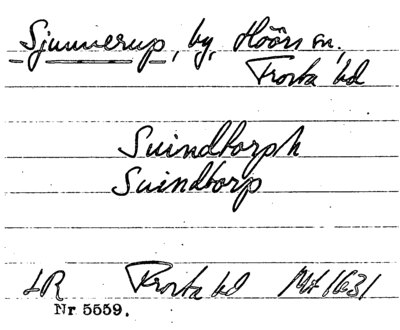 Sjunnerup, by, Höörs sn,
Frosta hd
Suindtorph
Suindtorp
LR Frosta hd Mt 1631
Nr 5559.